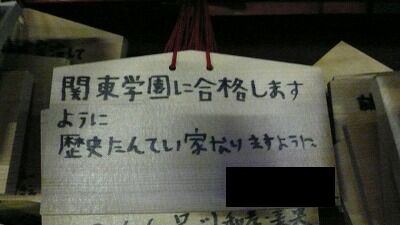 関東学園に合格します
ように
歴史たんてい家なりますように